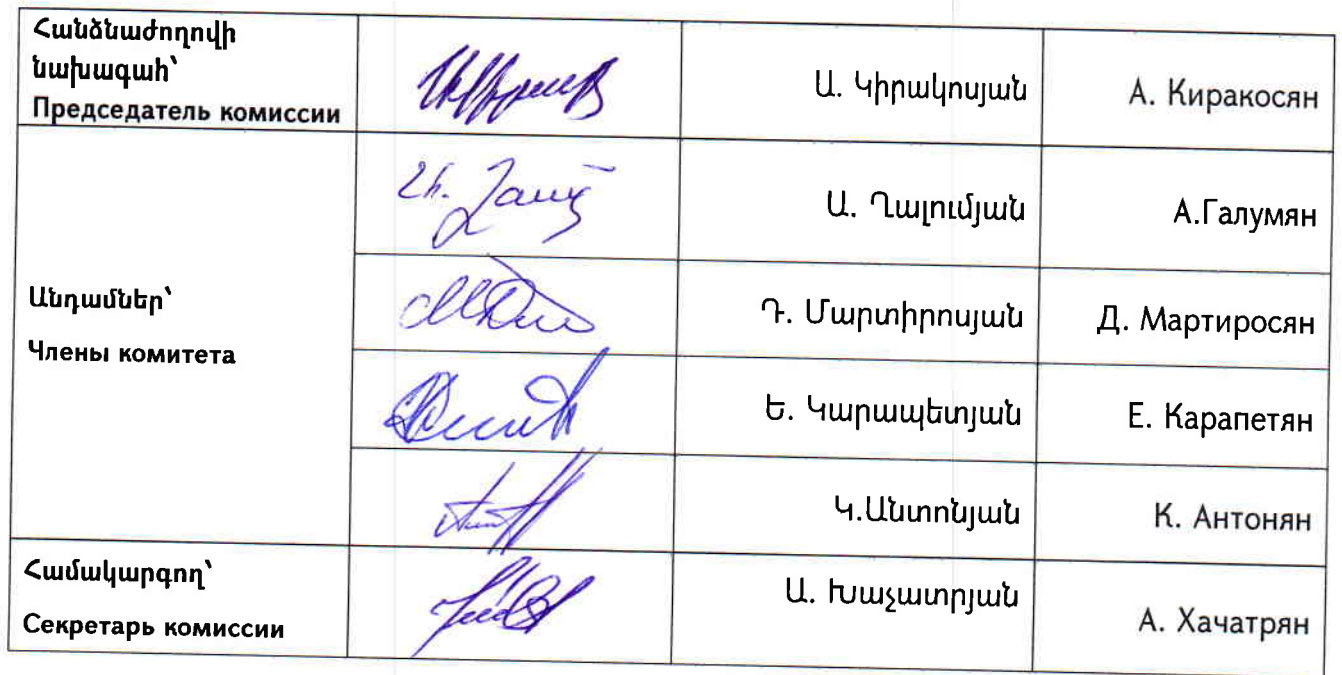 Հանձնաժողովի
նախագահ՝
Председатель комиссии
Ա. Կիրակոսյան
А. Киракосян
Ա. Ղալումյան
А.Галумян
Անդամներ՝
Члены комитета
Դ. Մարտիրոսյան
Д. Мартиросян
Ե. Կարապետյան
Е. Карапетян
Կ.Անտոնյան
К. Антонян
Համակարգող՝
Секретарь комиссии
Ա. Խաչատրյան
А. Хачатрян